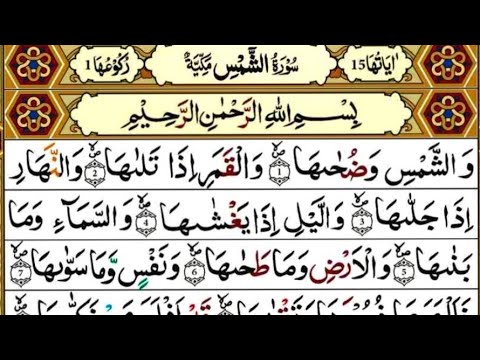 اٰيَاتُهَا 15 سُوْرَةُ الشَّمْسِ مَكِّيَّةٌ رُكُوْعُهَا 1
بِسْمِ اللّٰهِ الرَّحْمٰنِ الرَّحِيْمِ
وَالشَّمْسِ وَضُحٰىهَا ۪ۙ 1 وَالْقَمَرِ اِذَا تَلٰىهَا ۪ۙ 2 وَالنَّهَارِ
اِذَا جَلّٰىهَا ۪ۙ 3 وَالَّيْلِ اِذَا يَغْشٰىهَا ۪ۙ 4 وَالسَّمَآءِ وَمَا
بَنٰىهَا ۪ۙ 5 وَالْاَرْضِ وَمَا طَحٰىهَا ۪ۙ 6 وَنَفْسٍ وَّمَا سَوّٰىهَا ۪ۙ 7